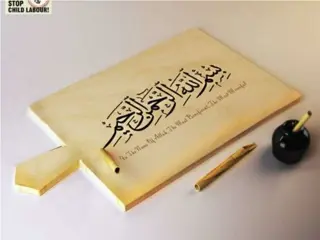 STOP
CHILD LABOUR!
بِسْمِ اللهِ الرَّحْمٰنِ الرَّحِيْمِ
In The Name Of Allah, The Most Beneficent, The Most Merciful